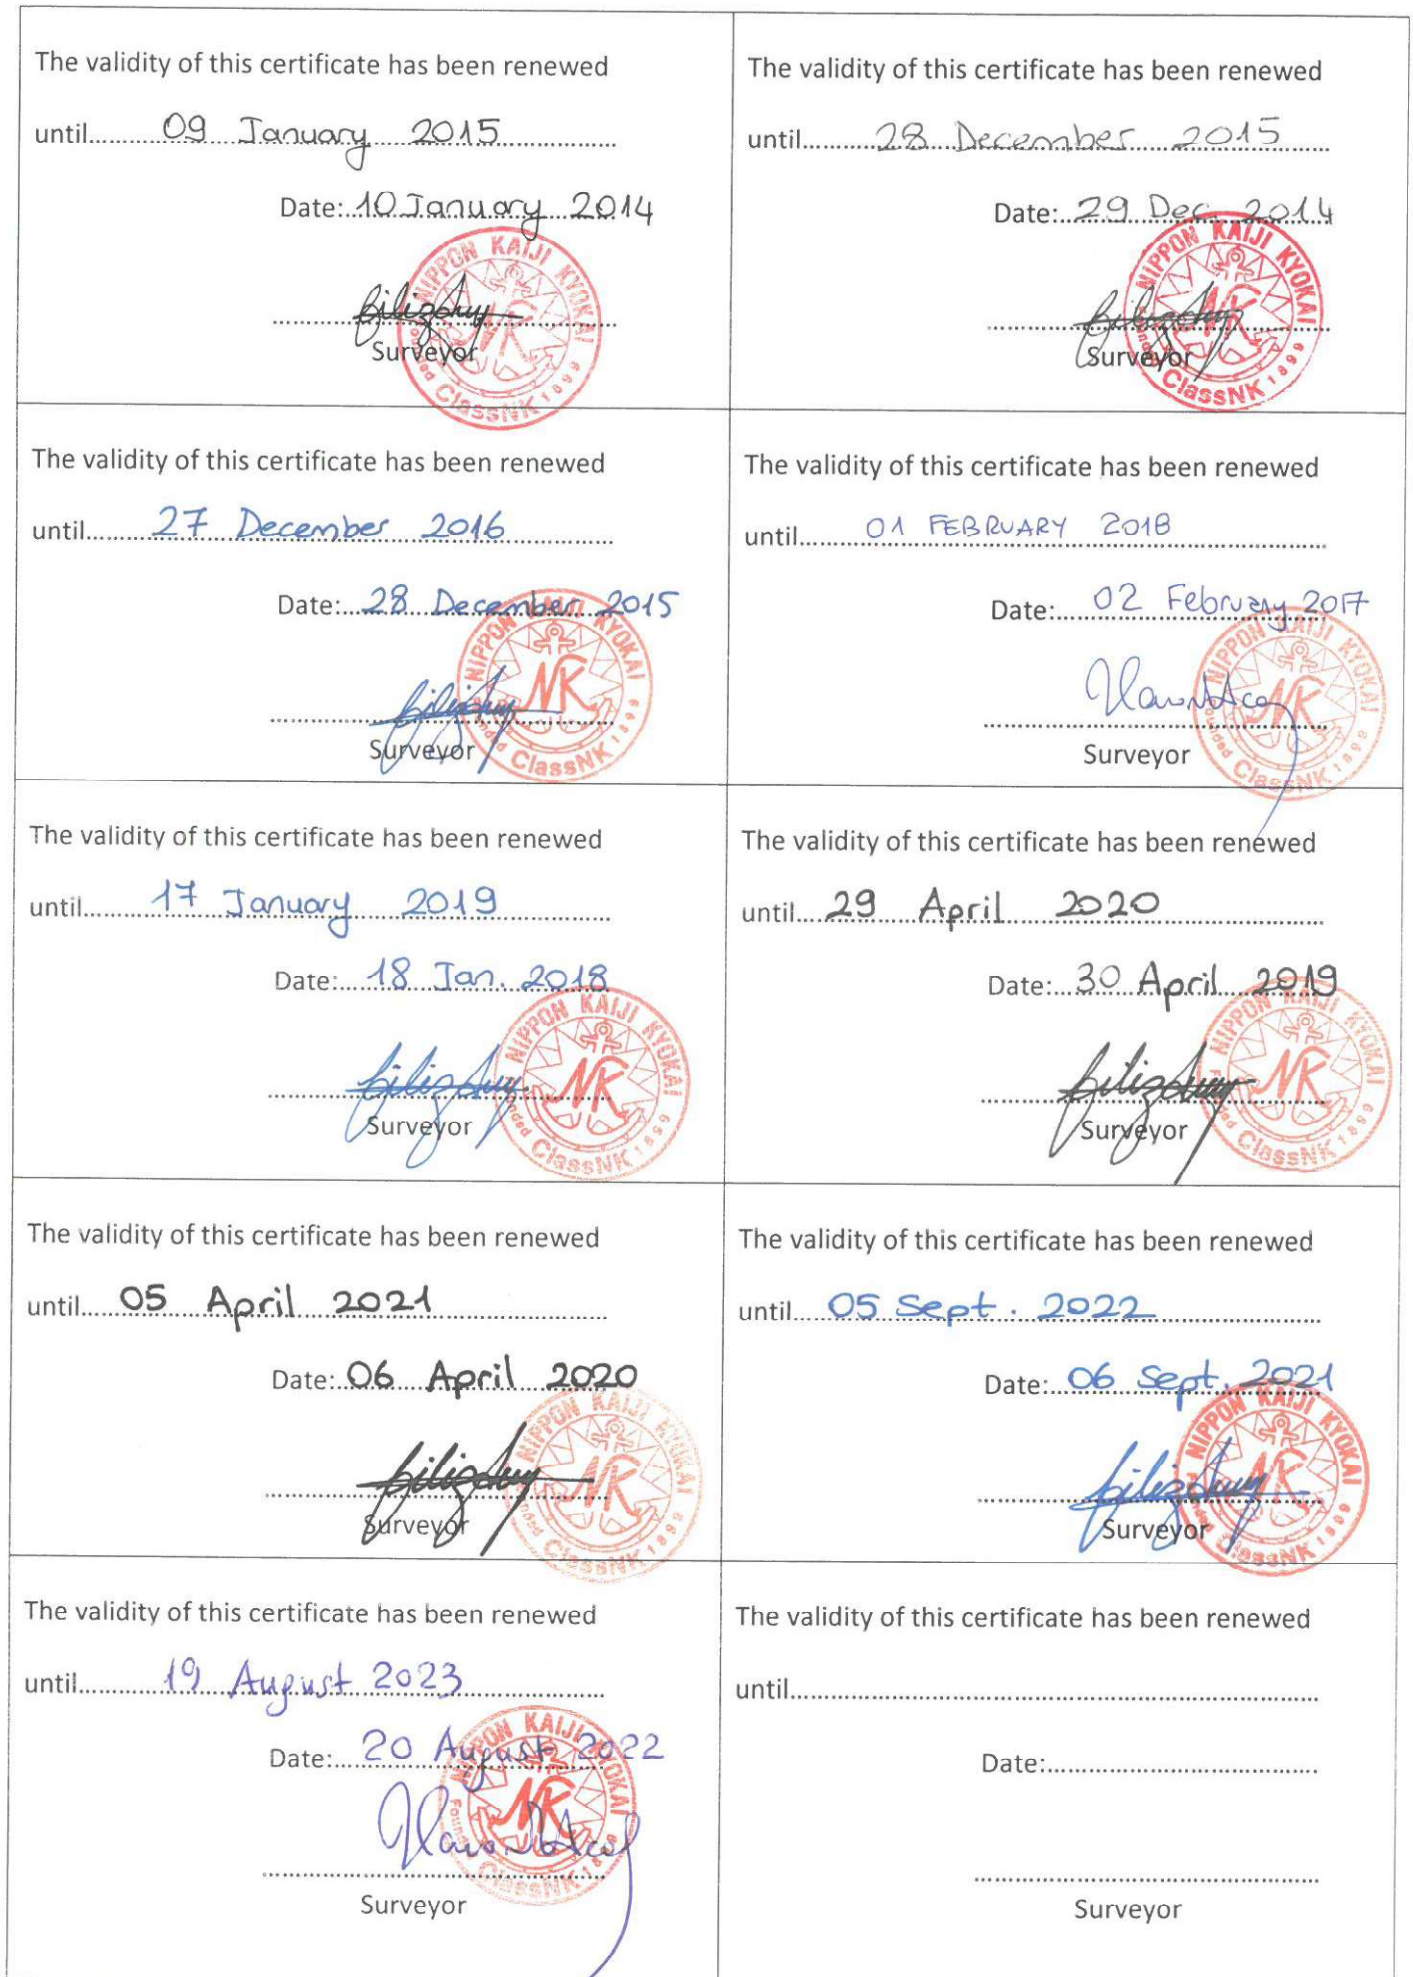 The validity of this certificate has been renewed
until.......... 09 January 2015
Date: 10 January 2014
Surveyor
NIPPON KAIJI KYOKAI
Founded 1899
ClassNK
NK
The validity of this certificate has been renewed
until.......... 28 December 2015
Date: 29 Dec. 2014
Surveyor
NIPPON KAIJI KYOKAI
Founded 1899
ClassNK
NK
The validity of this certificate has been renewed
until.......... 27 December 2016
Date: 28 December 2015
Surveyor
NIPPON KAIJI KYOKAI
Founded 1899
ClassNK
NK
The validity of this certificate has been renewed
until.......... 01 FEBRUARY 2018
Date: 02 February 2017
Surveyor
NIPPON KAIJI KYOKAI
Founded 1899
ClassNK
NK
The validity of this certificate has been renewed
until.......... 17 January 2019
Date: 18 Jan. 2018
Surveyor
NIPPON KAIJI KYOKAI
Founded 1899
ClassNK
NK
The validity of this certificate has been renewed
until.......... 29 April 2020
Date: 30 April 2019
Surveyor
NIPPON KAIJI KYOKAI
Founded 1899
ClassNK
NK
The validity of this certificate has been renewed
until.......... 05 April 2021
Date: 06 April 2020
Surveyor
NIPPON KAIJI KYOKAI
Founded 1899
ClassNK
NK
The validity of this certificate has been renewed
until.......... 05 Sept. 2022
Date: 06 Sept. 2021
Surveyor
NIPPON KAIJI KYOKAI
Founded 1899
ClassNK
NK
The validity of this certificate has been renewed
until.......... 19 August 2023
Date: 20 August 2022
Surveyor
NIPPON KAIJI KYOKAI
Founded 1899
ClassNK
NK
The validity of this certificate has been renewed
until..........
Date:..........
Surveyor